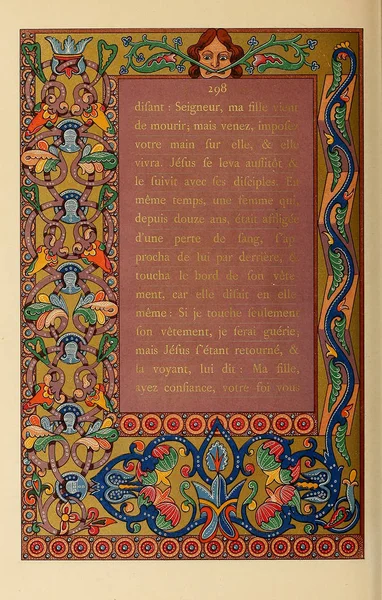 298
difant : Seigneur, ma fille vient
de mourir; mais venez, impofez
votre main fur elle, & elle
vivra. Jéfus fe leva auffitôt &
le fuivit avec fes difciples. En
même temps, une femme qui,
depuis douze ans, était affligée
d'une perte de fang, f'ap-
procha de lui par derrière, &
toucha le bord de fon vête-
ment, car elle difait en elle-
même : Si je touche feulement
fon vêtement, je ferai guérie;
mais Jéfus f'étant retourné, &
la voyant, lui dit : Ma fille,
ayez confiance, votre foi vous